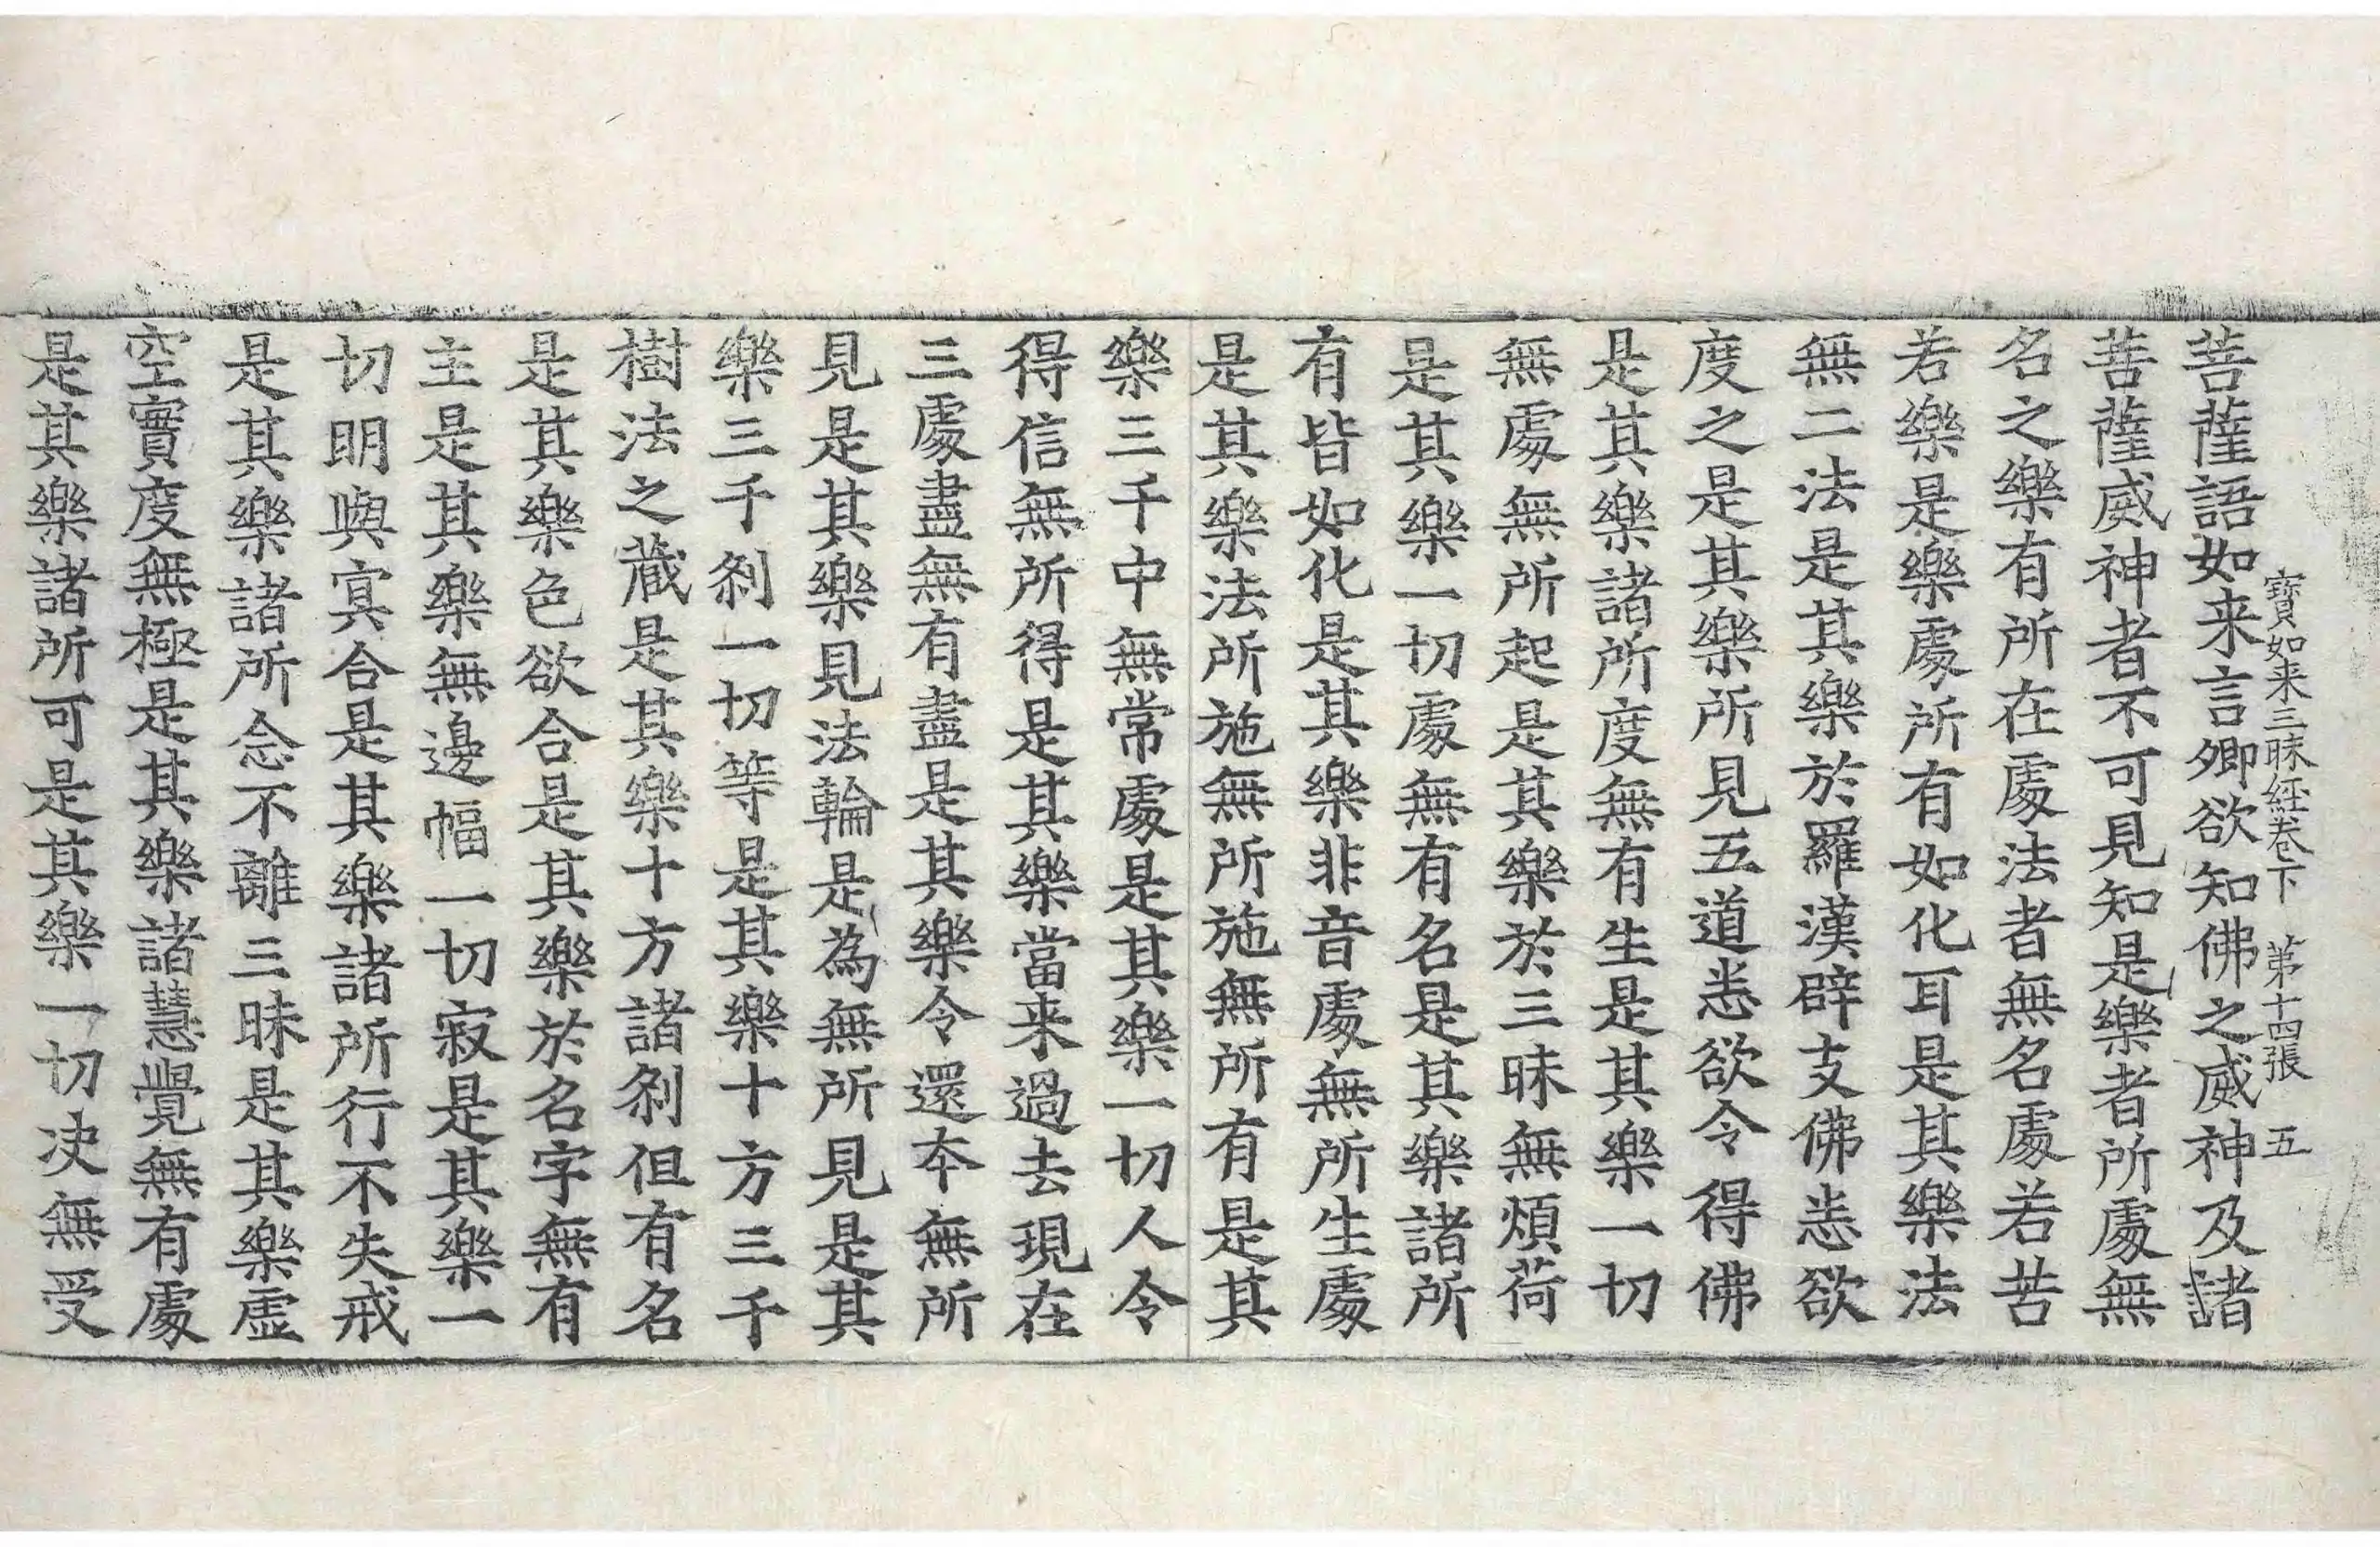 寶如来三昧経卷下　第十四張　五
菩薩語如来言卿欲知佛之威神及諸
菩薩威神者不可見知是樂者所處無
名之樂有所在處法者無名處若苦
若樂是樂處所有如化耳是其樂法
無二法是其樂於羅漢辟支佛恙欲
度之是其樂所見五道恙欲令得佛
是其樂諸所度無有生是其樂一切
無處無所起是其樂於三昧無煩荷
是其樂一切處無有名是其樂諸所
有皆如化是其樂非音處無所生處
是其樂法所施無所施無所有是其
樂三千中無常處是其樂一切人令
得信無所得是其樂當来過去現在
三處盡無有盡是其樂令還夲無所
見是其樂見法輪是為無所見是其
樂三千刹一切等是其樂十方三千
樹法之藏是其樂十方諸刹但有名
是其樂色欲合是其樂於名字無有
主是其樂無邊幅一切寂是其樂一
切明與冥合是其樂諸所行不失戒
是其樂諸所念不離三昧是其樂虛
空實度無極是其樂諸慧覺無有處
是其樂諸所可是其樂一切决無受